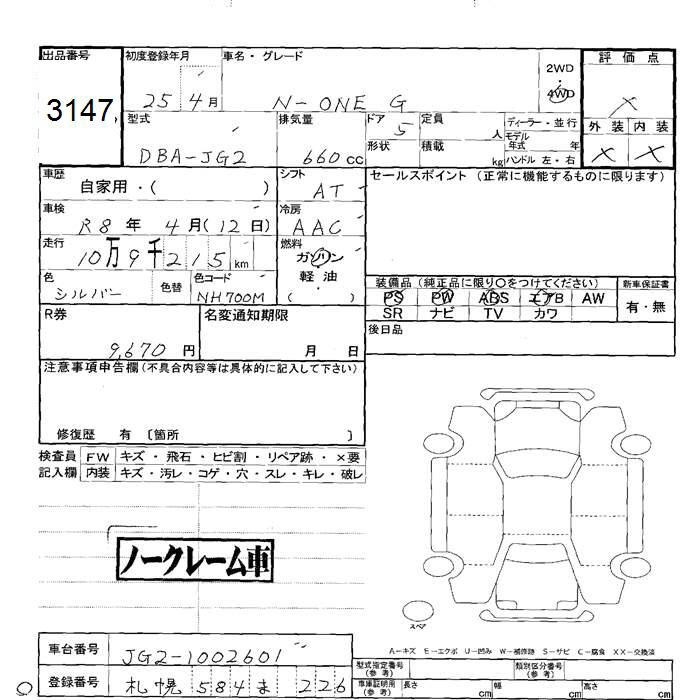 出品番号
3147
初度登録年月
25 4月
車名・グレード
N-ONE G
2WD
・
4WD
評価点
×
外装 内装
× ×
型式
DBA-JG2
排気量
660cc
ドア
5
形状
定員
人
積載
kg
ディーラー・並行
モデル
年式 年
ハンドル 左・右
車歴
自家用・( )
シフト
AT
車検
R8年 4月(12日)
冷房
AAC
走行
10万9千215km
燃料
ガソリン
・
軽油
( )
色
シルバー
色替
色コード
NH700M
セールスポイント (正常に機能するものに限ります)
装備品 (純正品に限り〇をつけてください)
PS PW ABS エアB AW
SR ナビ TV カワ
新車保証書
有・無
後日品
R券
9,670円
名変通知期限
月 日
注意事項申告欄(不具合内容等は具体的に記入して下さい)
修復歴 有 〔箇所 〕
検査員
記入欄
FW キズ・飛石・ヒビ割・リペア跡・×要
内装 キズ・汚レ・コゲ・穴・スレ・キレ・破レ
ノークレーム車
スペア
A-キズ E-エクボ U-凹み W-補修跡 S-サビ C-腐食 XX-交換済
車台番号
JG2-1002601
登録番号
札幌 584 ま 226
型式指定番号
(参考)
類別区分番号
(参考)
車庫証明用
(参考)
長さ cm
幅 cm
高さ cm